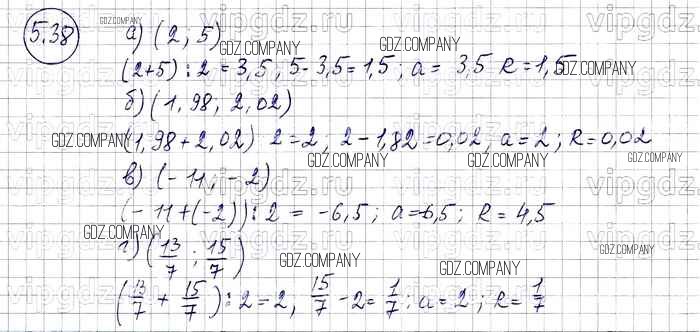 5.38 а) (2; 5)
(2+5) : 2 = 3,5, 5 - 3,5 = 1,5; a = 3,5 R = 1,5
б) (1,98; 2,02)
(1,98 + 2,02) 2 = 2, 2 - 1,82 = 0,02, a = 2; R = 0,02
в) (-11; -2)
(-11 + (-2)) : 2 = -6,5; a = -6,5; R = 4,5
г) (13/7; 15/7)
(13/7 + 15/7) : 2 = 2, 15/7 - 2 = 1/7; a = 2; R = 1/7
GDZ.COMPANY
GDZ.COMPANY
GDZ.COMPANY
GDZ.COMPANY
GDZ.COMPANY
GDZ.COMPANY
GDZ.COMPANY
GDZ.COMPANY
GDZ.COMPANY
GDZ.COMPANY
GDZ.COMPANY
GDZ.COMPANY
vipgdz.ru